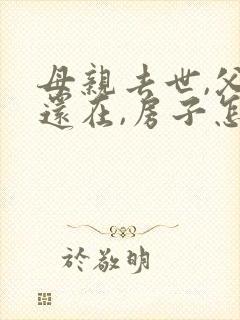 母親去世,父
還在,房子怎
於敬明